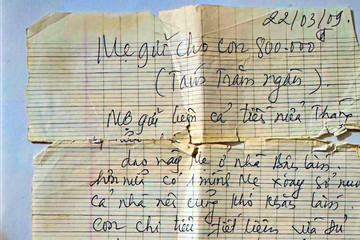 22/03/09.
Mẹ gửi cho con 800.000đ
(Tám Trăm ngàn).
Mẹ gửi luôn cả tiền nửa Tháng
dạo này mẹ ở nhà Bận lắm
hơn nữa có 1 mình Mẹ xoay sở nuôi
cả nhà nên cũng khó khăn lắm
con chi tiêu tiết kiệm vừa đủ